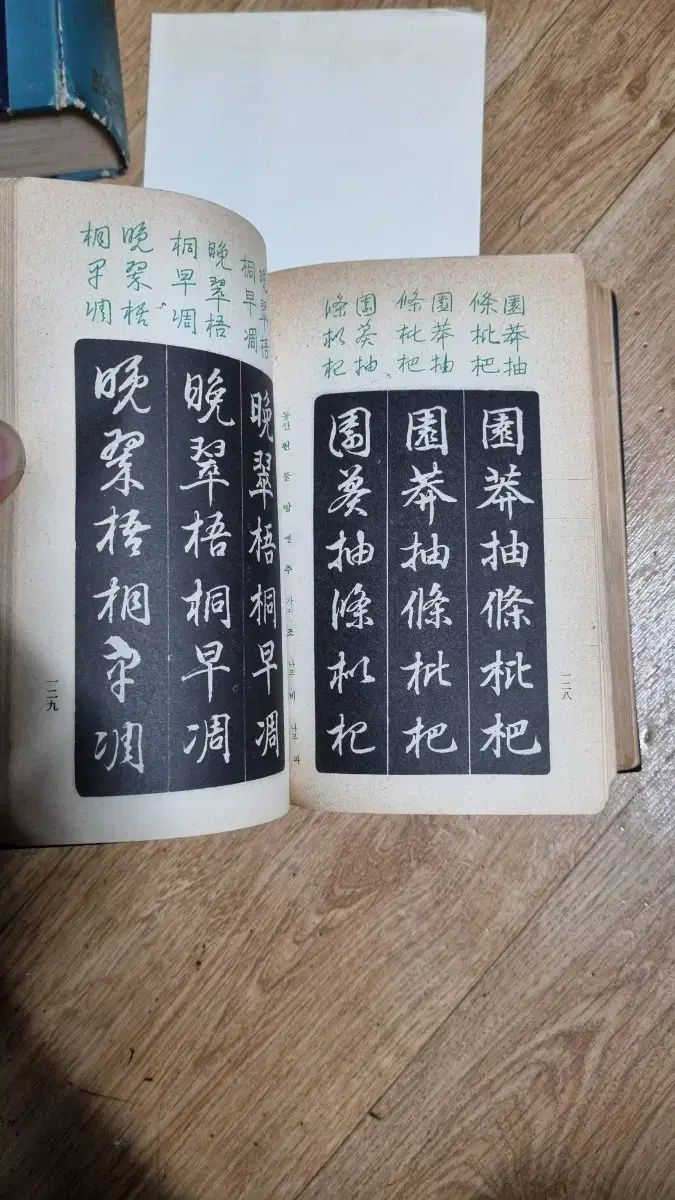 園莽抽
條枇杷
園莽抽
條枇杷
園莽抽
條枇杷
園莽抽條枇杷
園莽抽條枇杷
園莽抽條枇杷
一二八
동산 원 풀 망 가지 조 나무 비 나무 파
晩翠梧
桐早凋
晩翠梧
桐早凋
晩翠梧
桐早凋
晩翠梧桐早凋
晩翠梧桐早凋
晩翠梧桐早凋
一二九